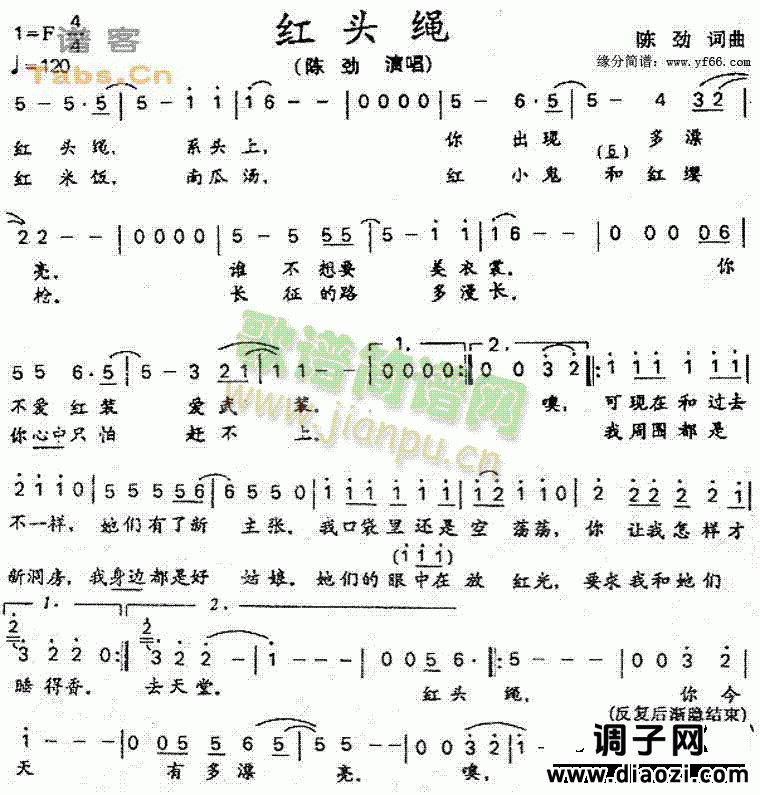 1=F 4/4
♩=120
谱客
Tabs.Cn
红头绳
(陈劲 演唱)
陈劲 词曲
缘分简谱：www.yf66.com
5 - 5· 5 | 5 - i i | i 6 - - | 0 0 0 0 | 5 - 6· 5 | 5 - 4 3 2 |
红 头 绳， 系 头 上， 你 出 现 多 漂
(5)
红 米 饭， 南 瓜 汤， 红 小 鬼 和 红 缨
2 2 - - | 0 0 0 0 | 5 - 5 5 5 | 5 - i i | i 6 - - | 0 0 0 0 6 |
亮。 谁 不 想 要 美 衣 裳。 你
枪。 长 征 的 路 多 漫 长，
1. 2.
5 5 6· 5 | 5 - 3 2 1 | 1 1 - - | 0 0 0 0 :| 0 0 3 2 |: i i i i i i |
不 爱 红 装 爱 武 装。 噢， 可 现 在 和 过 去
你 心 中 只 怕 赶 不 上。 我 周 围 都 是
2 i i 0 | 5 5 5 5 5 6 | 6 5 5 0 | i i i i i i i | i 2 i i 0 | 2 2 2 2 2 i |
不 一 样， 她 们 有 了 新 主 张。 我 口 袋 里 还 是 空 荡 荡， 你 让 我 怎 样 才
(i i i)
新 洞 房， 我 身 边 都 是 好 姑 娘。 她 们 的 眼 中 在 放 红 光， 要 求 我 和 她 们
1. 2.
3 2 2 0 :| 3 2 2 - | i - - - | 0 0 5 6· |: 5 - - - | 0 0 3 2 |
睡 得 香。 去 天 堂。 红 头 绳， 你 今
(反复后渐隐结束)
i - - - | 0 0 5 5 6 | 5 5 - - | 0 0 3 2 | i -
天 有 多 漂 亮。 噢，
歌谱简谱网
www.jianpu.cn
调子网
www.diaozi.com